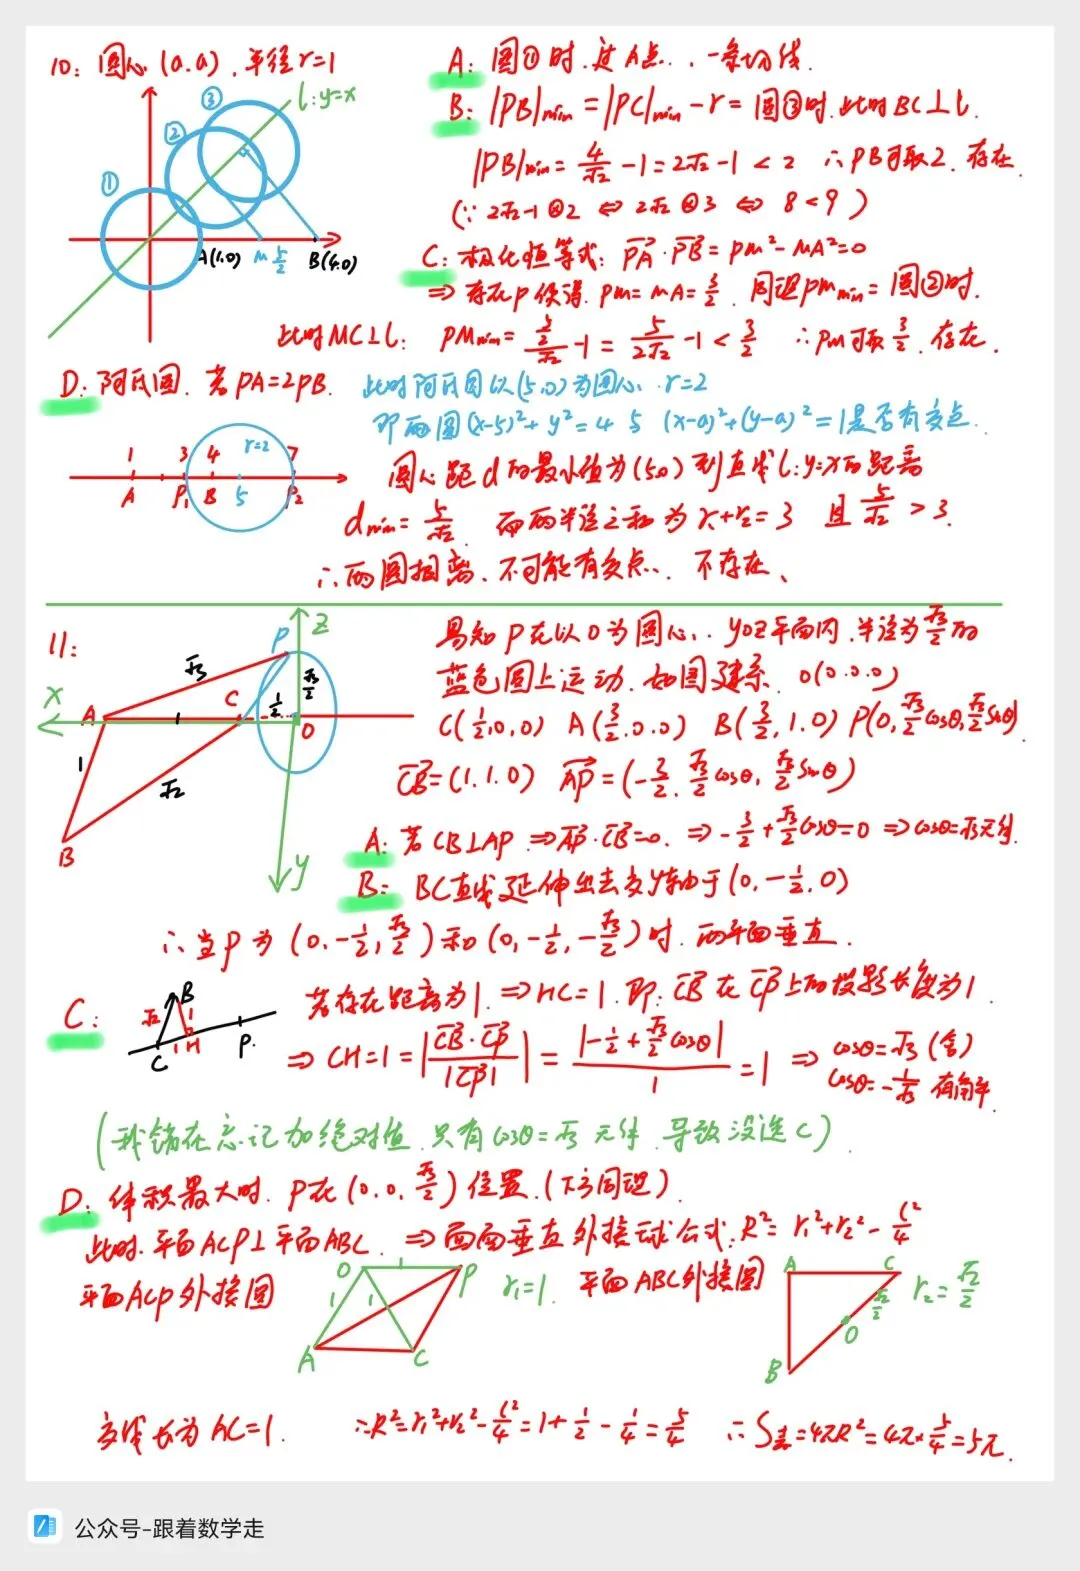 10: 圆心 (a.a). 半径 r=1
l: y=x
① ② ③
A(1.0) M 5/2 B(4.0)
A: 圆①时. 过A点.. 一条切线.
B: |PB|min = |PC|min - r = 圆③时. 此时BC⊥l.
|PB|min = 4/√2 - 1 = 2√2 - 1 < 2 ∴PB可取2. 存在.
(∵ 2√2-1 @ 2 ⇔ 2√2 @ 3 ⇔ 8<9)
C: 极化恒等式: PA·PB = PM² - MA² = 0
⇒ 存在P使得. PM = MA = 3/2. 同理PMmin = 圆②时.
此时MC⊥l: PMmin = (5/2)/√2 - 1 = 5/(2√2) - 1 < 3/2 ∴PM可取3/2. 存在.
D: 阿氏圆. 若PA=2PB. 此时阿氏圆以(5,0)为圆心. r=2
即两圆(x-5)²+y²=4 与 (x-a)²+(y-a)²=1是否有交点..
1 3 4 r=2 7
A P₁ B 5 P₂
圆心距d的最小值为(5,0)到直线l:y=x的距离
dmin = 5/√2 而两半径之和为r₁+r₂=3 且 5/√2 > 3.
∴两圆相离. 不可能有交点.. 不存在.
11:
X A B C P O Z y
√3 1 1/2 √3/2 1 √2
易知P在以O为圆心.. yOz平面内. 半径为√3/2的
蓝色圆上运动. 如图建系. O(0.0.0)
C(1/2,0,0) A(3/2.0.0) B(3/2,1.0) P(0,√3/2cosθ,√3/2sinθ)
CB=(1.1.0) AP=(-3/2. √3/2cosθ, √3/2sinθ)
A: 若CB⊥AP ⇒AP·CB=0. ⇒ -3/2+√3/2cosθ=0 ⇒cosθ=√3无解.
B: BC直线延伸出去交y轴于(0,-1/2,0)
∴当P为(0.-1/2,√3/2)和(0,-1/2,-√3/2)时. 两平面垂直.
C: 若存在距离为1. ⇒HC=1. 即: CB在CP上的投影长度为1.
B √2 1 C 1 H P.
⇒ CH=1=|CB·CP/|CP||=|-1/2+√3/2cosθ|/1=1 ⇒ cosθ=√3(舍)
cosθ=-1/√3 有解.
(我错在忘记加绝对值. 只有cosθ=√3无解. 导致没选C)
D: 体积最大时. P在(0.0,√3/2)位置.(下方同理).
此时. 平面ACP⊥平面ABC. ⇒面面垂直外接球公式: R²=r₁²+r₂²-l²/4
平面ACP外接圆
O 1 P 1 1 A C
r₁=1. 平面ABC外接圆
A C √2/2 O B
r₂=√2/2
交线长为AC=1. ∴R²=r₁²+r₂²-l²/4=1+1/2-1/4=5/4 ∴S表=4πR²=4π×5/4=5π.
公众号-跟着数学走